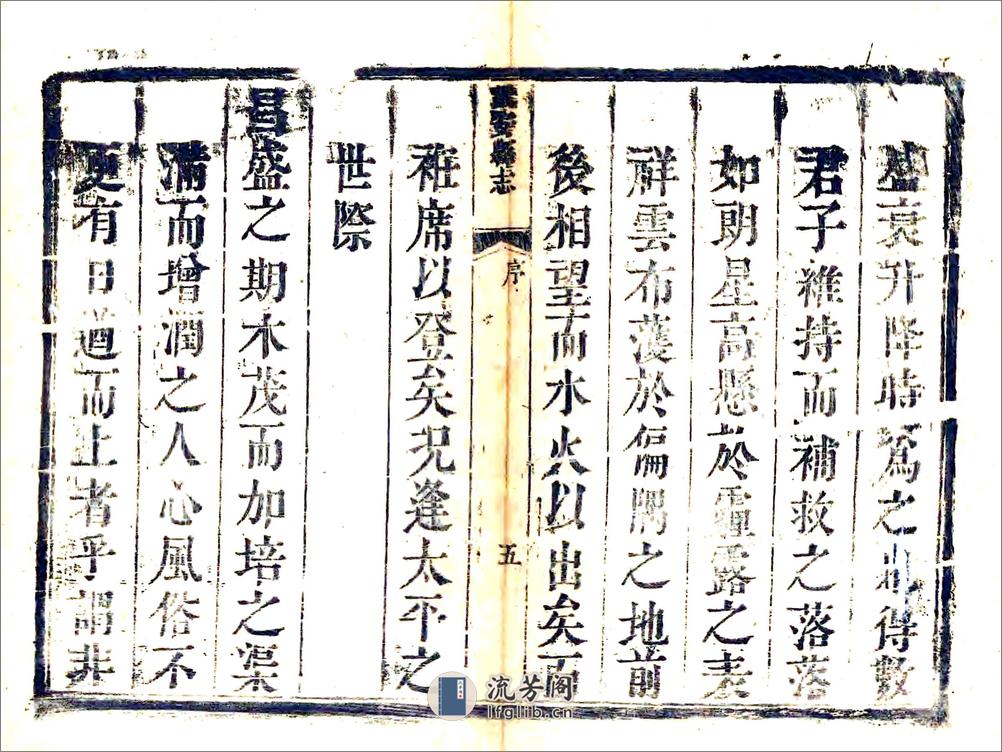 盛衰升降時為之非得數
君子維持而補救之落落
如朗星高懸於露之表
祥雲布濩於偏隅之地前
後相望而水火以出矣而
安縣志
序
五
袵席以登矣况逢太平之
世際
昌盛之期木茂而加培之渠
滿而增潤之人心風俗不
更有日遒而上者乎謂非
流芳阁
lfglib.cn